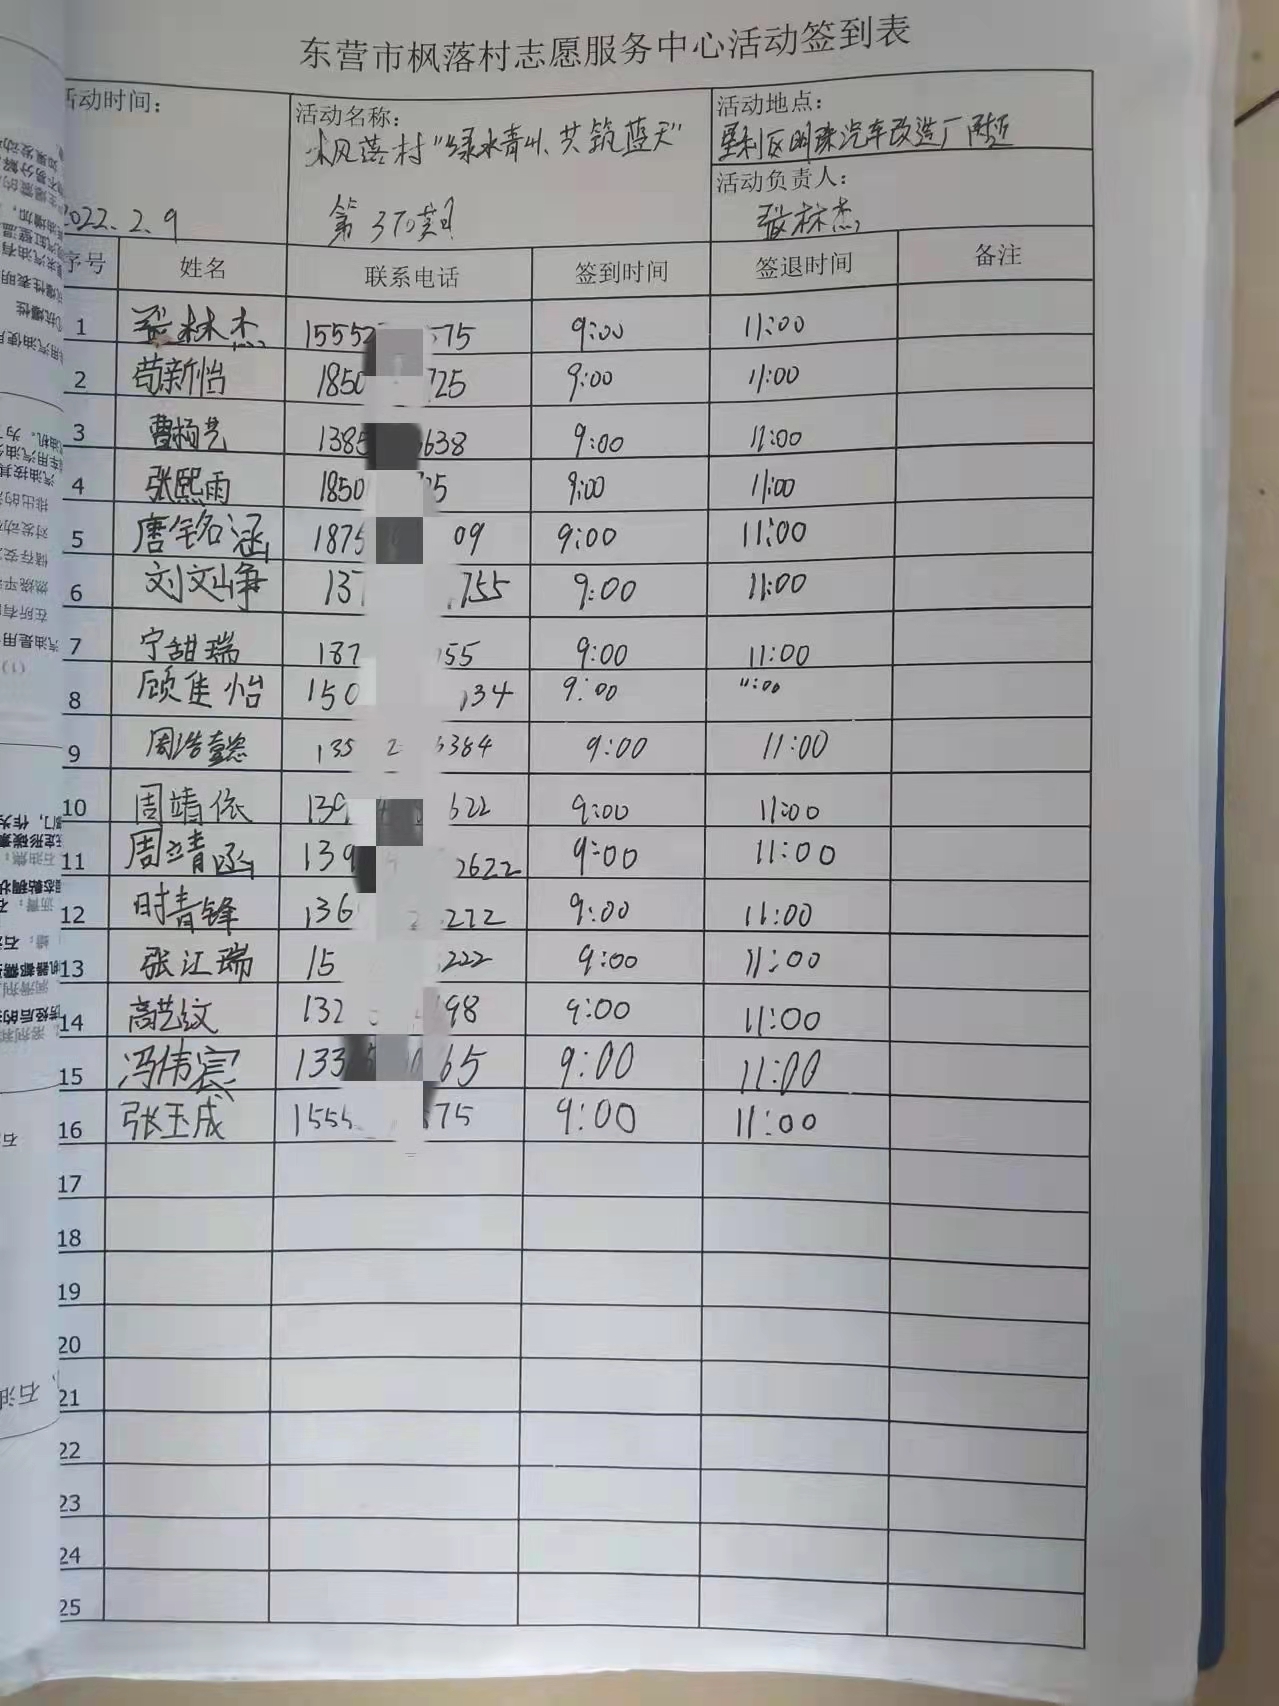 东营市枫落村志愿服务中心活动签到表
活动时间：
2022.2.9
活动名称：
枫落村"绿水青山、共筑蓝天"
第370期
活动地点：
垦利区明珠汽车改造厂附近
活动负责人：
张林杰
序号 姓名 联系电话 签到时间 签退时间 备注
1 张林杰 1555 75 9:00 11:00
2 苟新怡 1850 725 9:00 11:00
3 曹杨艺 138 638 9:00 11:00
4 张熙雨 1850 5 9:00 11:00
5 唐铭涵 1875 09 9:00 11:00
6 刘文峥 13 755 9:00 11:00
7 宁甜瑞 187 55 9:00 11:00
8 顾佳怡 150 134 9:00 11:00
9 周浩懿 135 2 384 9:00 11:00
10 周靖依 139 622 9:00 11:00
11 周靖函 139 2622 9:00 11:00
12 时青锋 136 9:00 11:00
13 张江瑞 15 222 9:00 11:00
14 高艺纹 132 98 9:00 11:00
15 冯伟宾 133 65 9:00 11:00
16 张玉成 1555 75 9:00 11:00
17
18
19
20
21
22
23
24
25